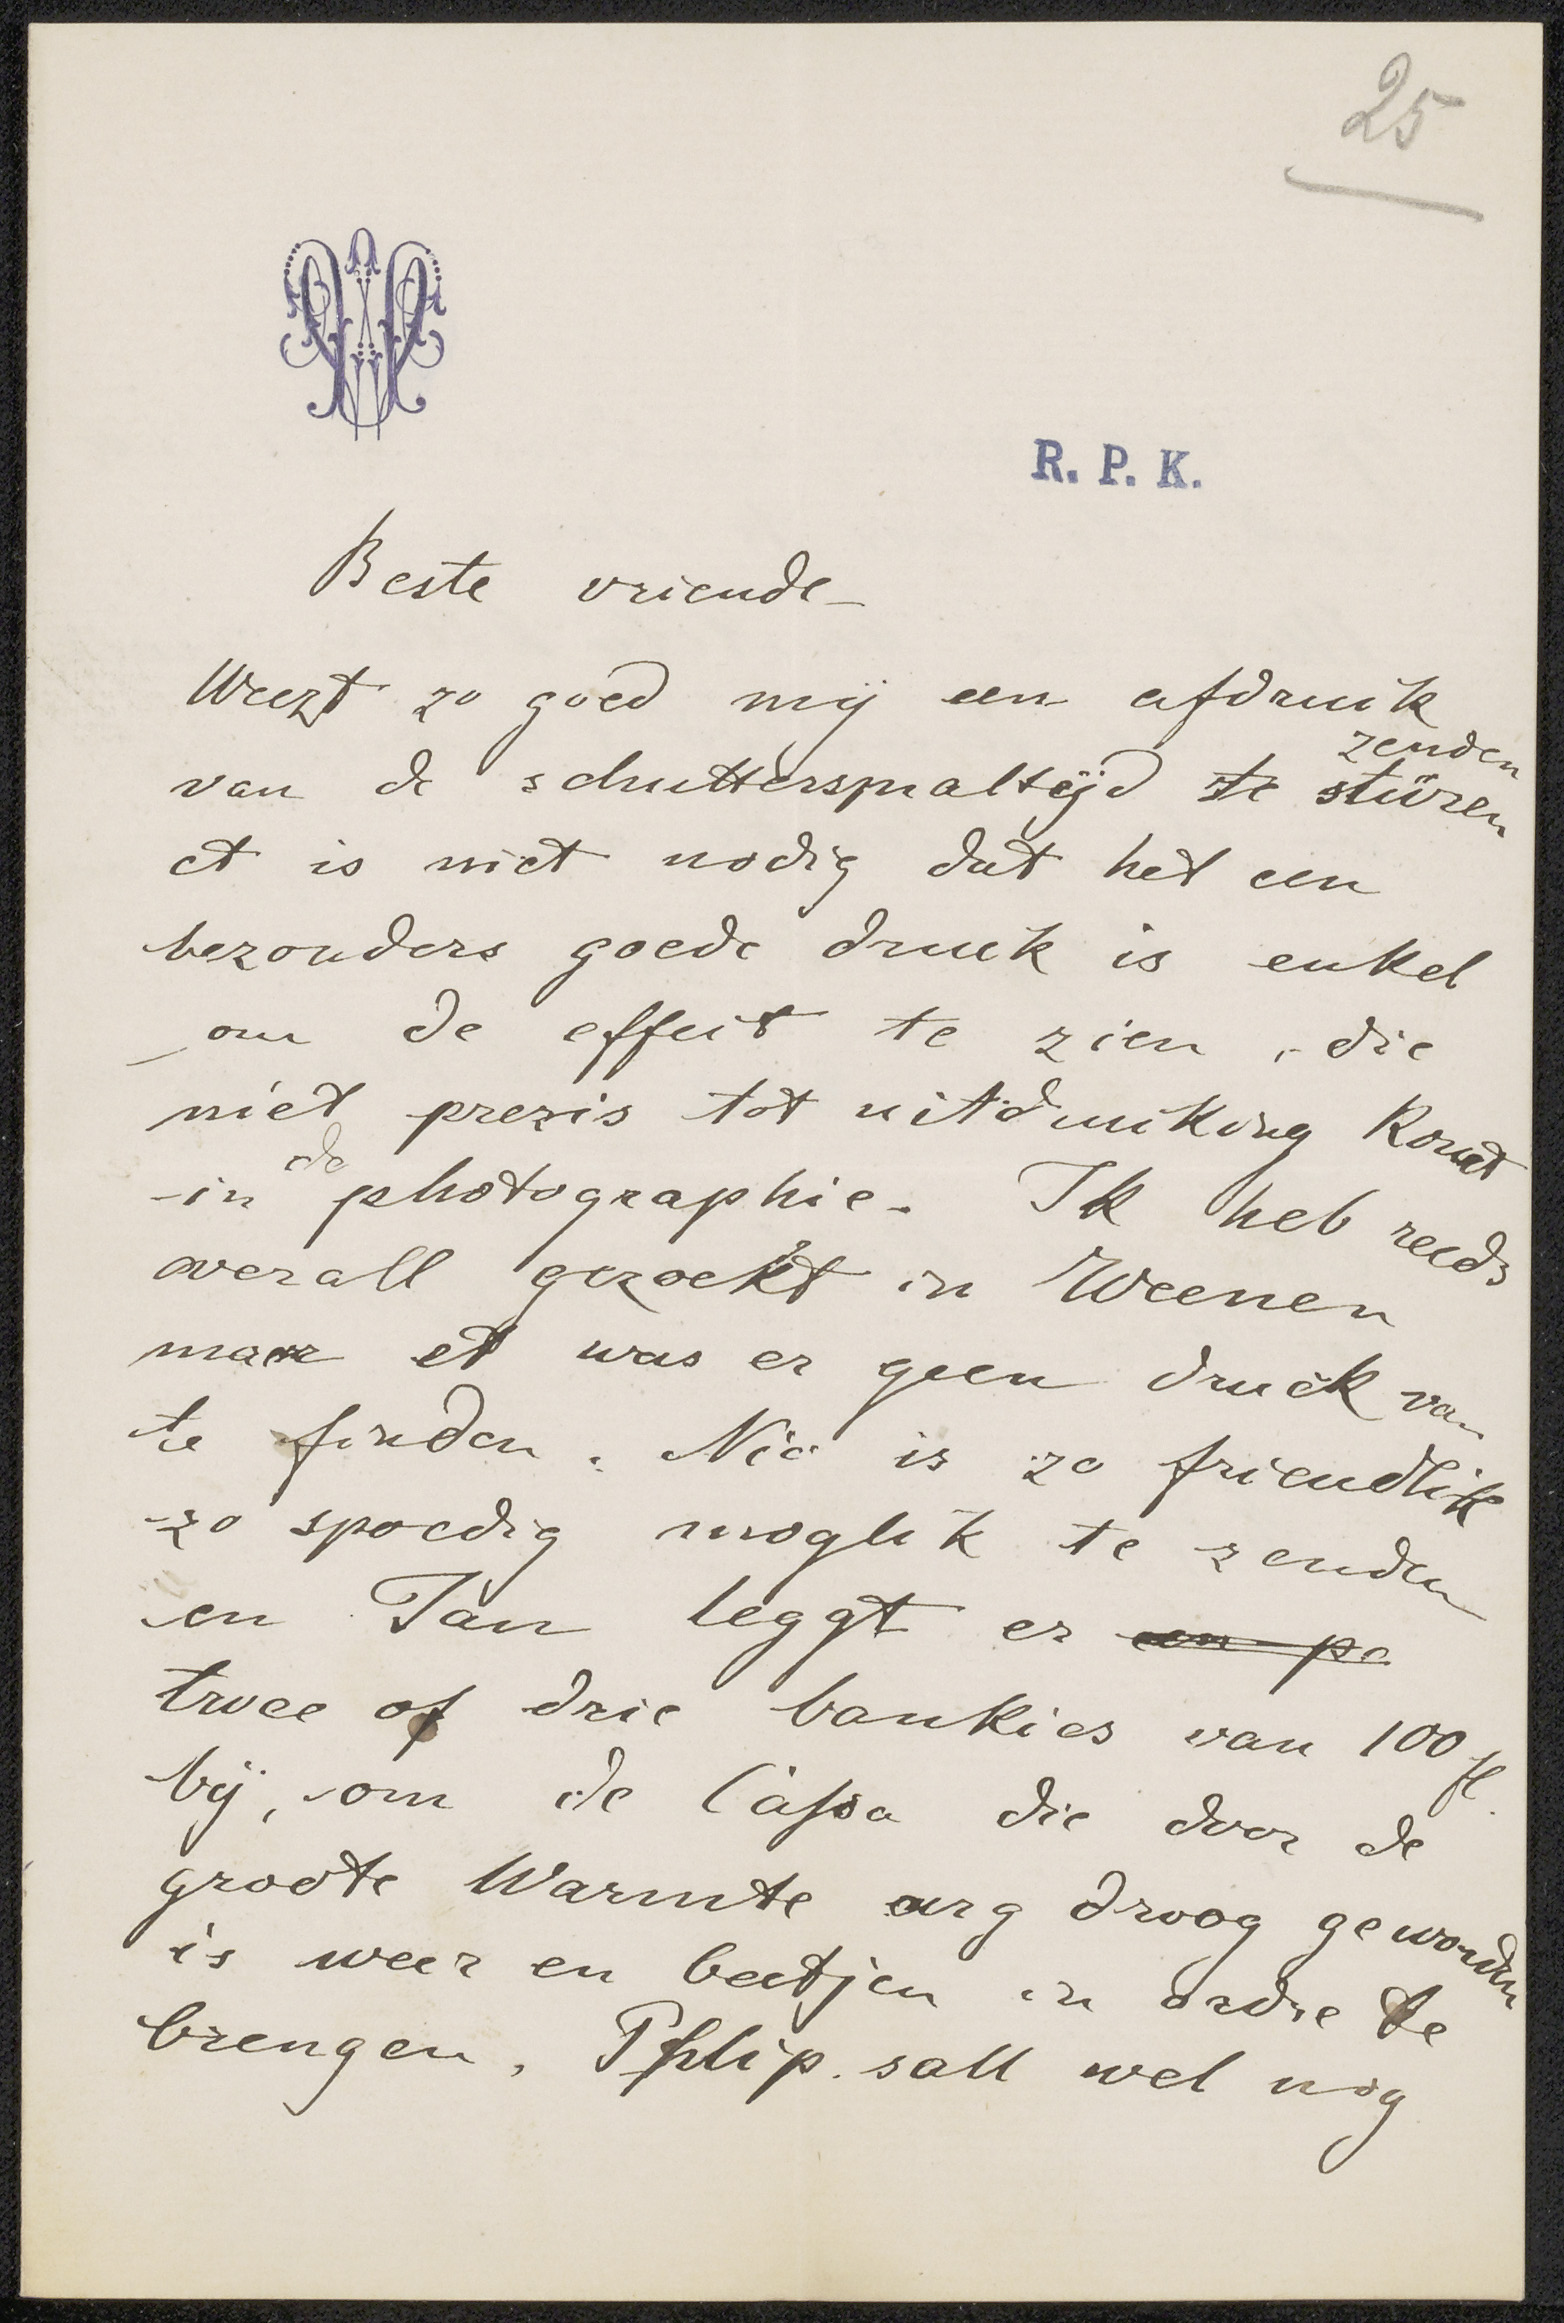 25
R. P. K.
Beste vriende
Weezt zo goed mij een afdruik
zenden
van de schuttersmaltijd te stüren
et is niet nodig dat het een
bezonders goede druck is enkel
om de effeit te zien, die
niet prezis tot uitdruiking komt
de
in photographie. Ik heb reeds
overall gezoekt in Weenen
maar et was er geen druck van
te finden. Nic is zo friendlik
zo spoedig moglik te zenden
en Jan leggt er een pa
twee of drie bankies van 100 fl.
bij, om de Cassa die door de
groote Warmte arg droog geworden
is weer en beetjen in ordre te
brengen, Phlip. sall wel nog